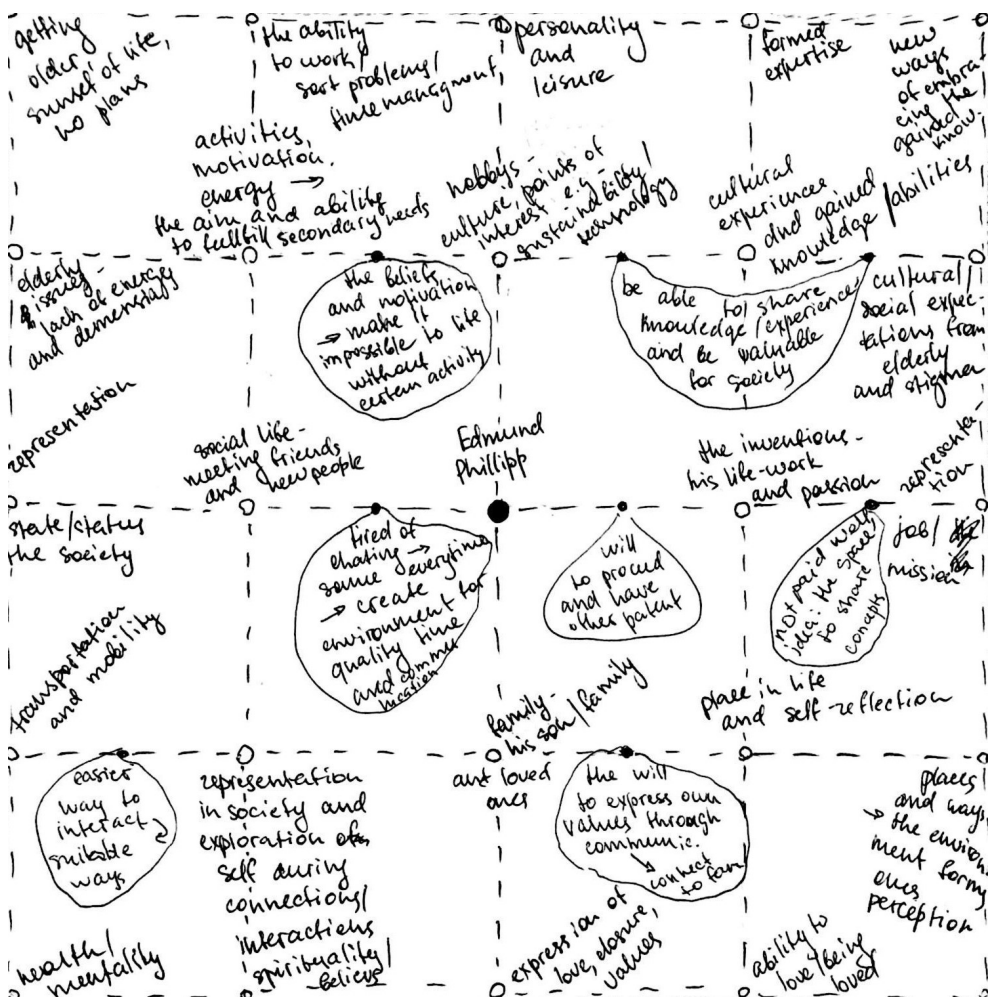 getting
older,
sunset of life,
no plans
the ability
to work/
sort problems/
time managment
personality
and
leisure
formed
expertise
new
ways
of embra
cing the
gained
know.
activities,
motivation,
energy →
the aim and ability
to fullfill secondary needs
hobby's -
culture, points of
interest e.g -
sustainability/
technology
cultural
experiences
and gained
knowledge / abilities
elderly
issues -
lack of energy
and dementia
the beliefs
and motivation
→ make it
impossible to life
without
certain activity
be able to share
knowledge/experiences
and be valuable
for society
cultural/
social expec-
tations from
elderly
and stigma
representation
social life -
meeting friends
and new people
Edmund
Phillipp
the inventions -
his life-work
and passion
representa-
tion
state/status
the society
tired of
chating →
same everytime
→ create
environment for
quality time
and commu
nication
will
to procud
and have
other patent
not paid well
idea: the space
to share
concepts
job/
mission
transportation
and mobility
family -
his son/family
and loved
ones
place in life
and self-reflection
easier
way to
interact
suitable
ways
representation
in society and
exploration of
self during
connections/
interactions
spirituality/
believs
the will
to express own
values through
communic.
→ connect
to fam
places
and ways
→ the environ
ment forms
ones
perception
health/
mentality
expression of
love, closure,
values
ability to
love/being
loved